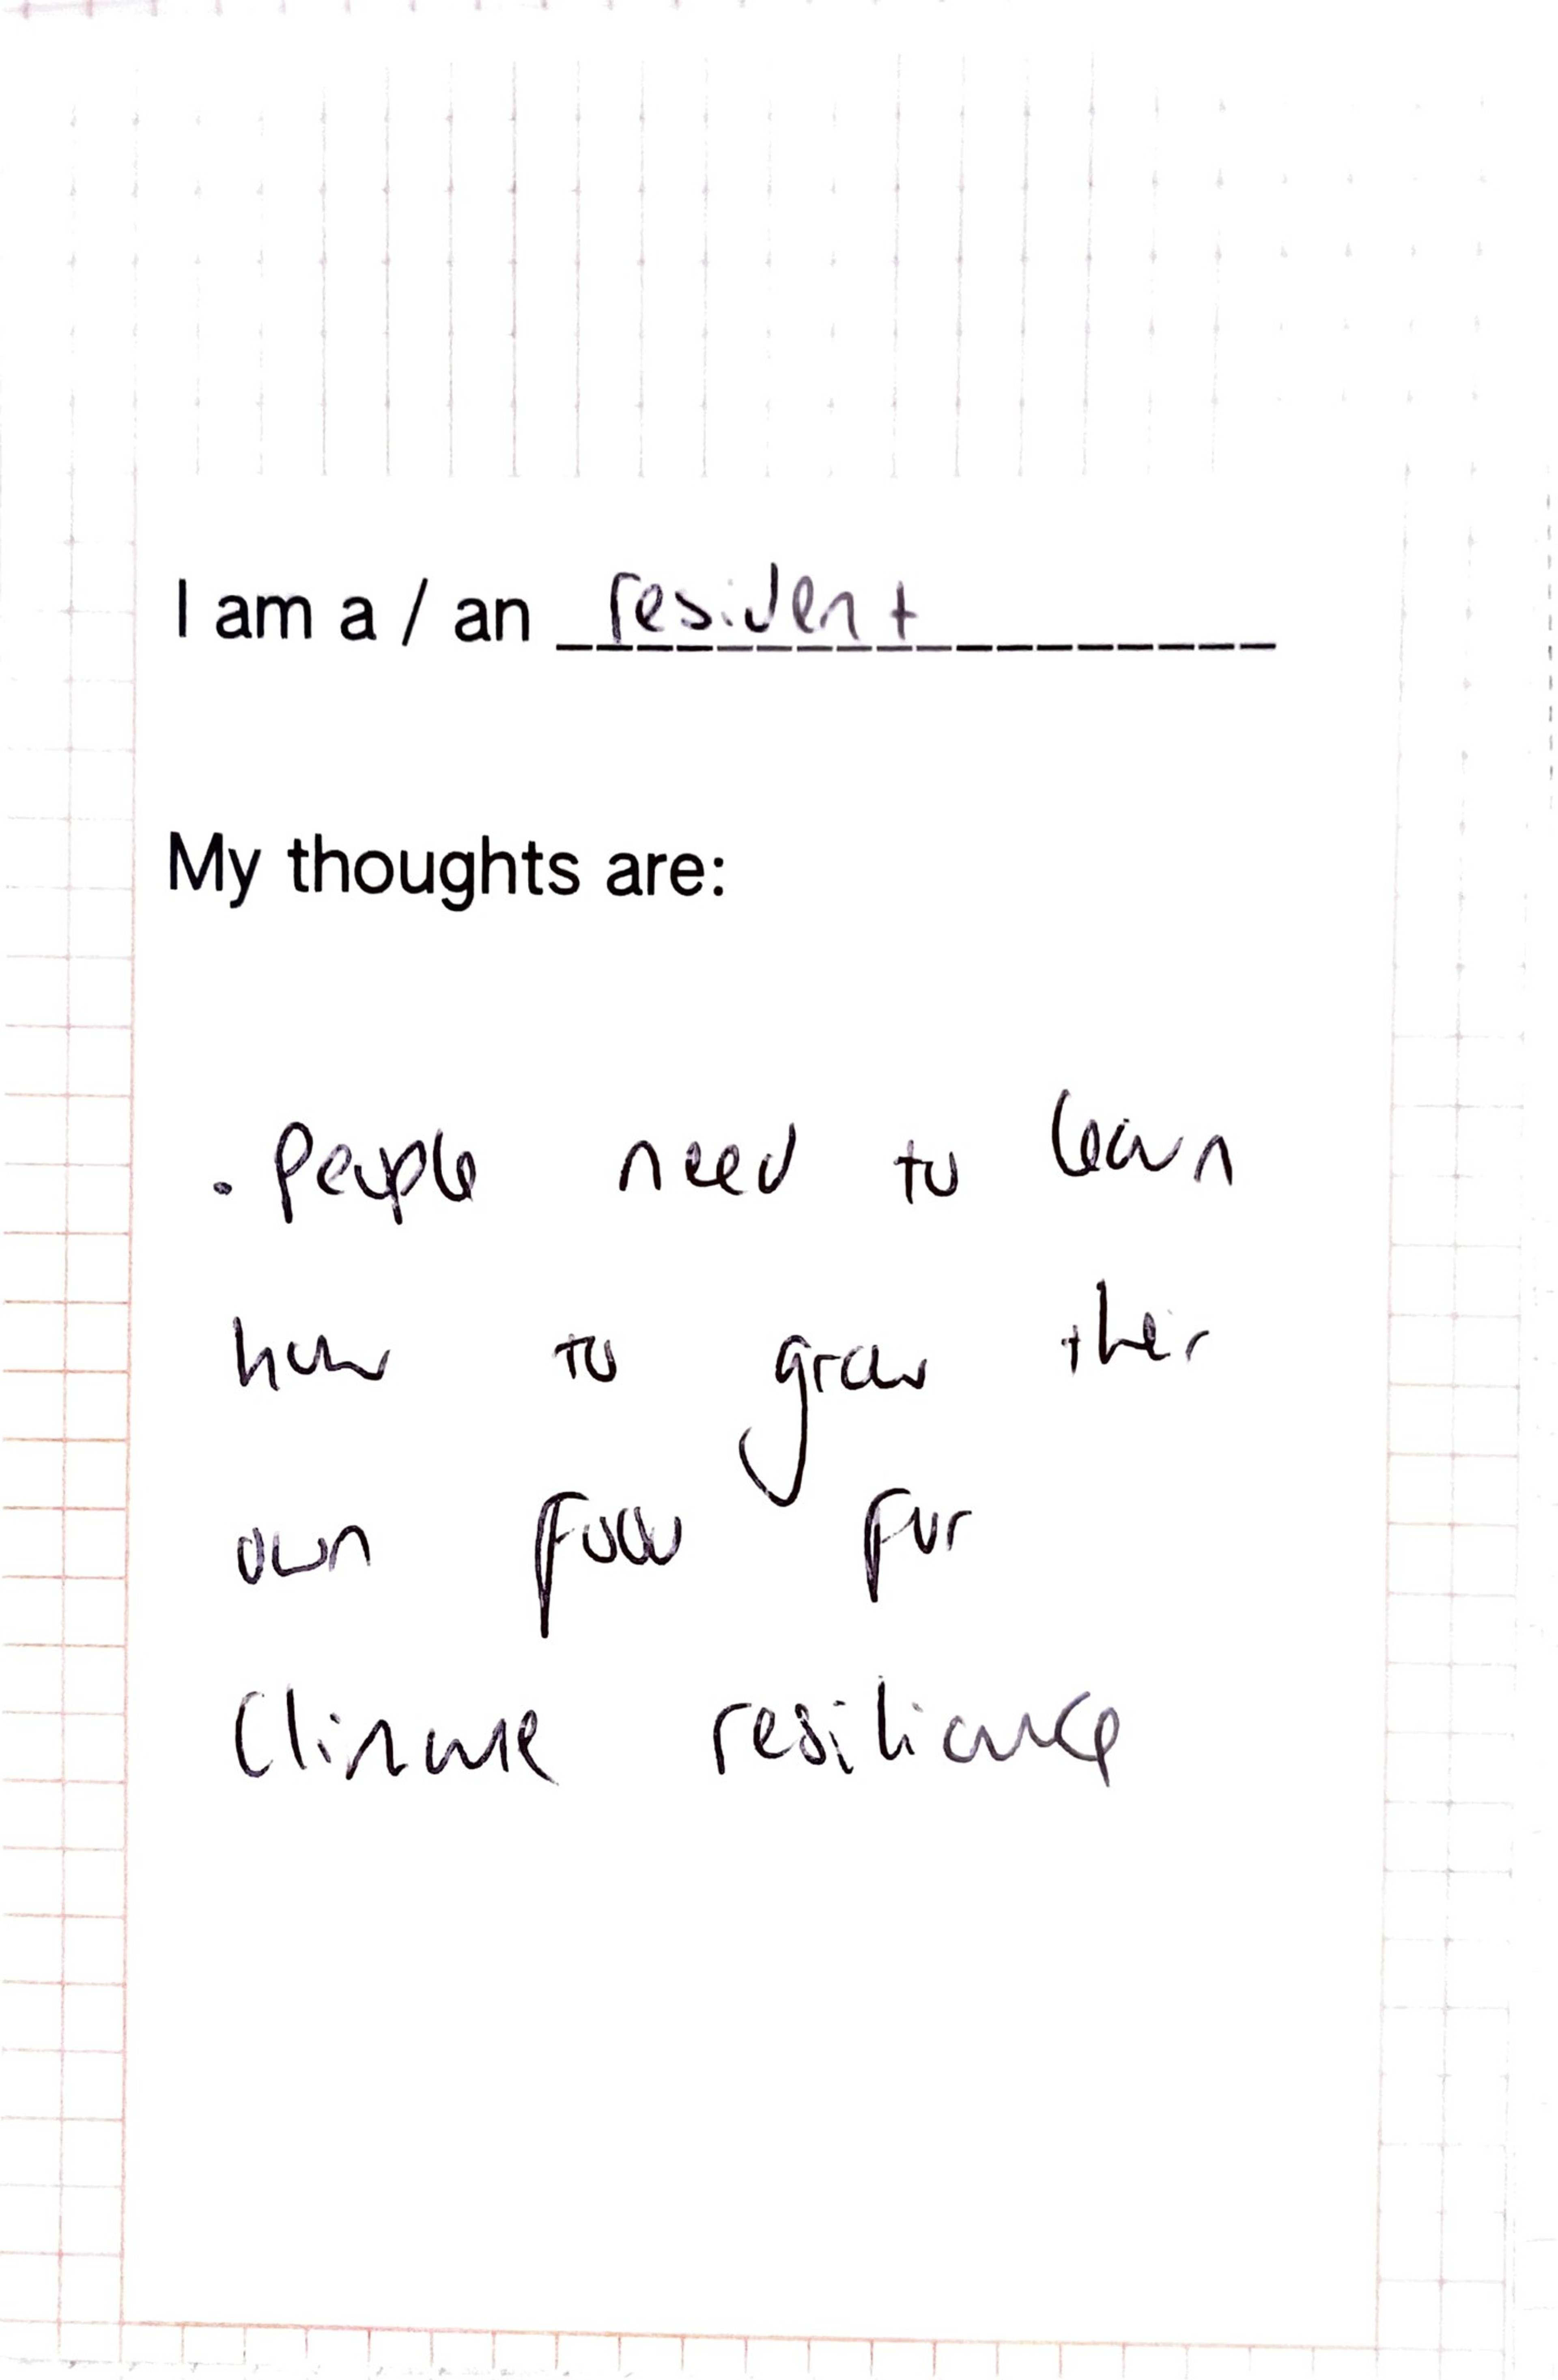 I am a / an resident
My thoughts are:
. People need to learn
how to grow their
own food for
Climate resilience